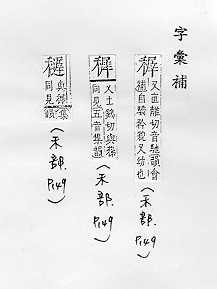 字彙補
又直離切音馳韻會
自驕矜貌又幼也
(禾部.P149)
又土 切與
同見五音集韻
(禾部.P149)
與 同見集韻
(禾部.P149)